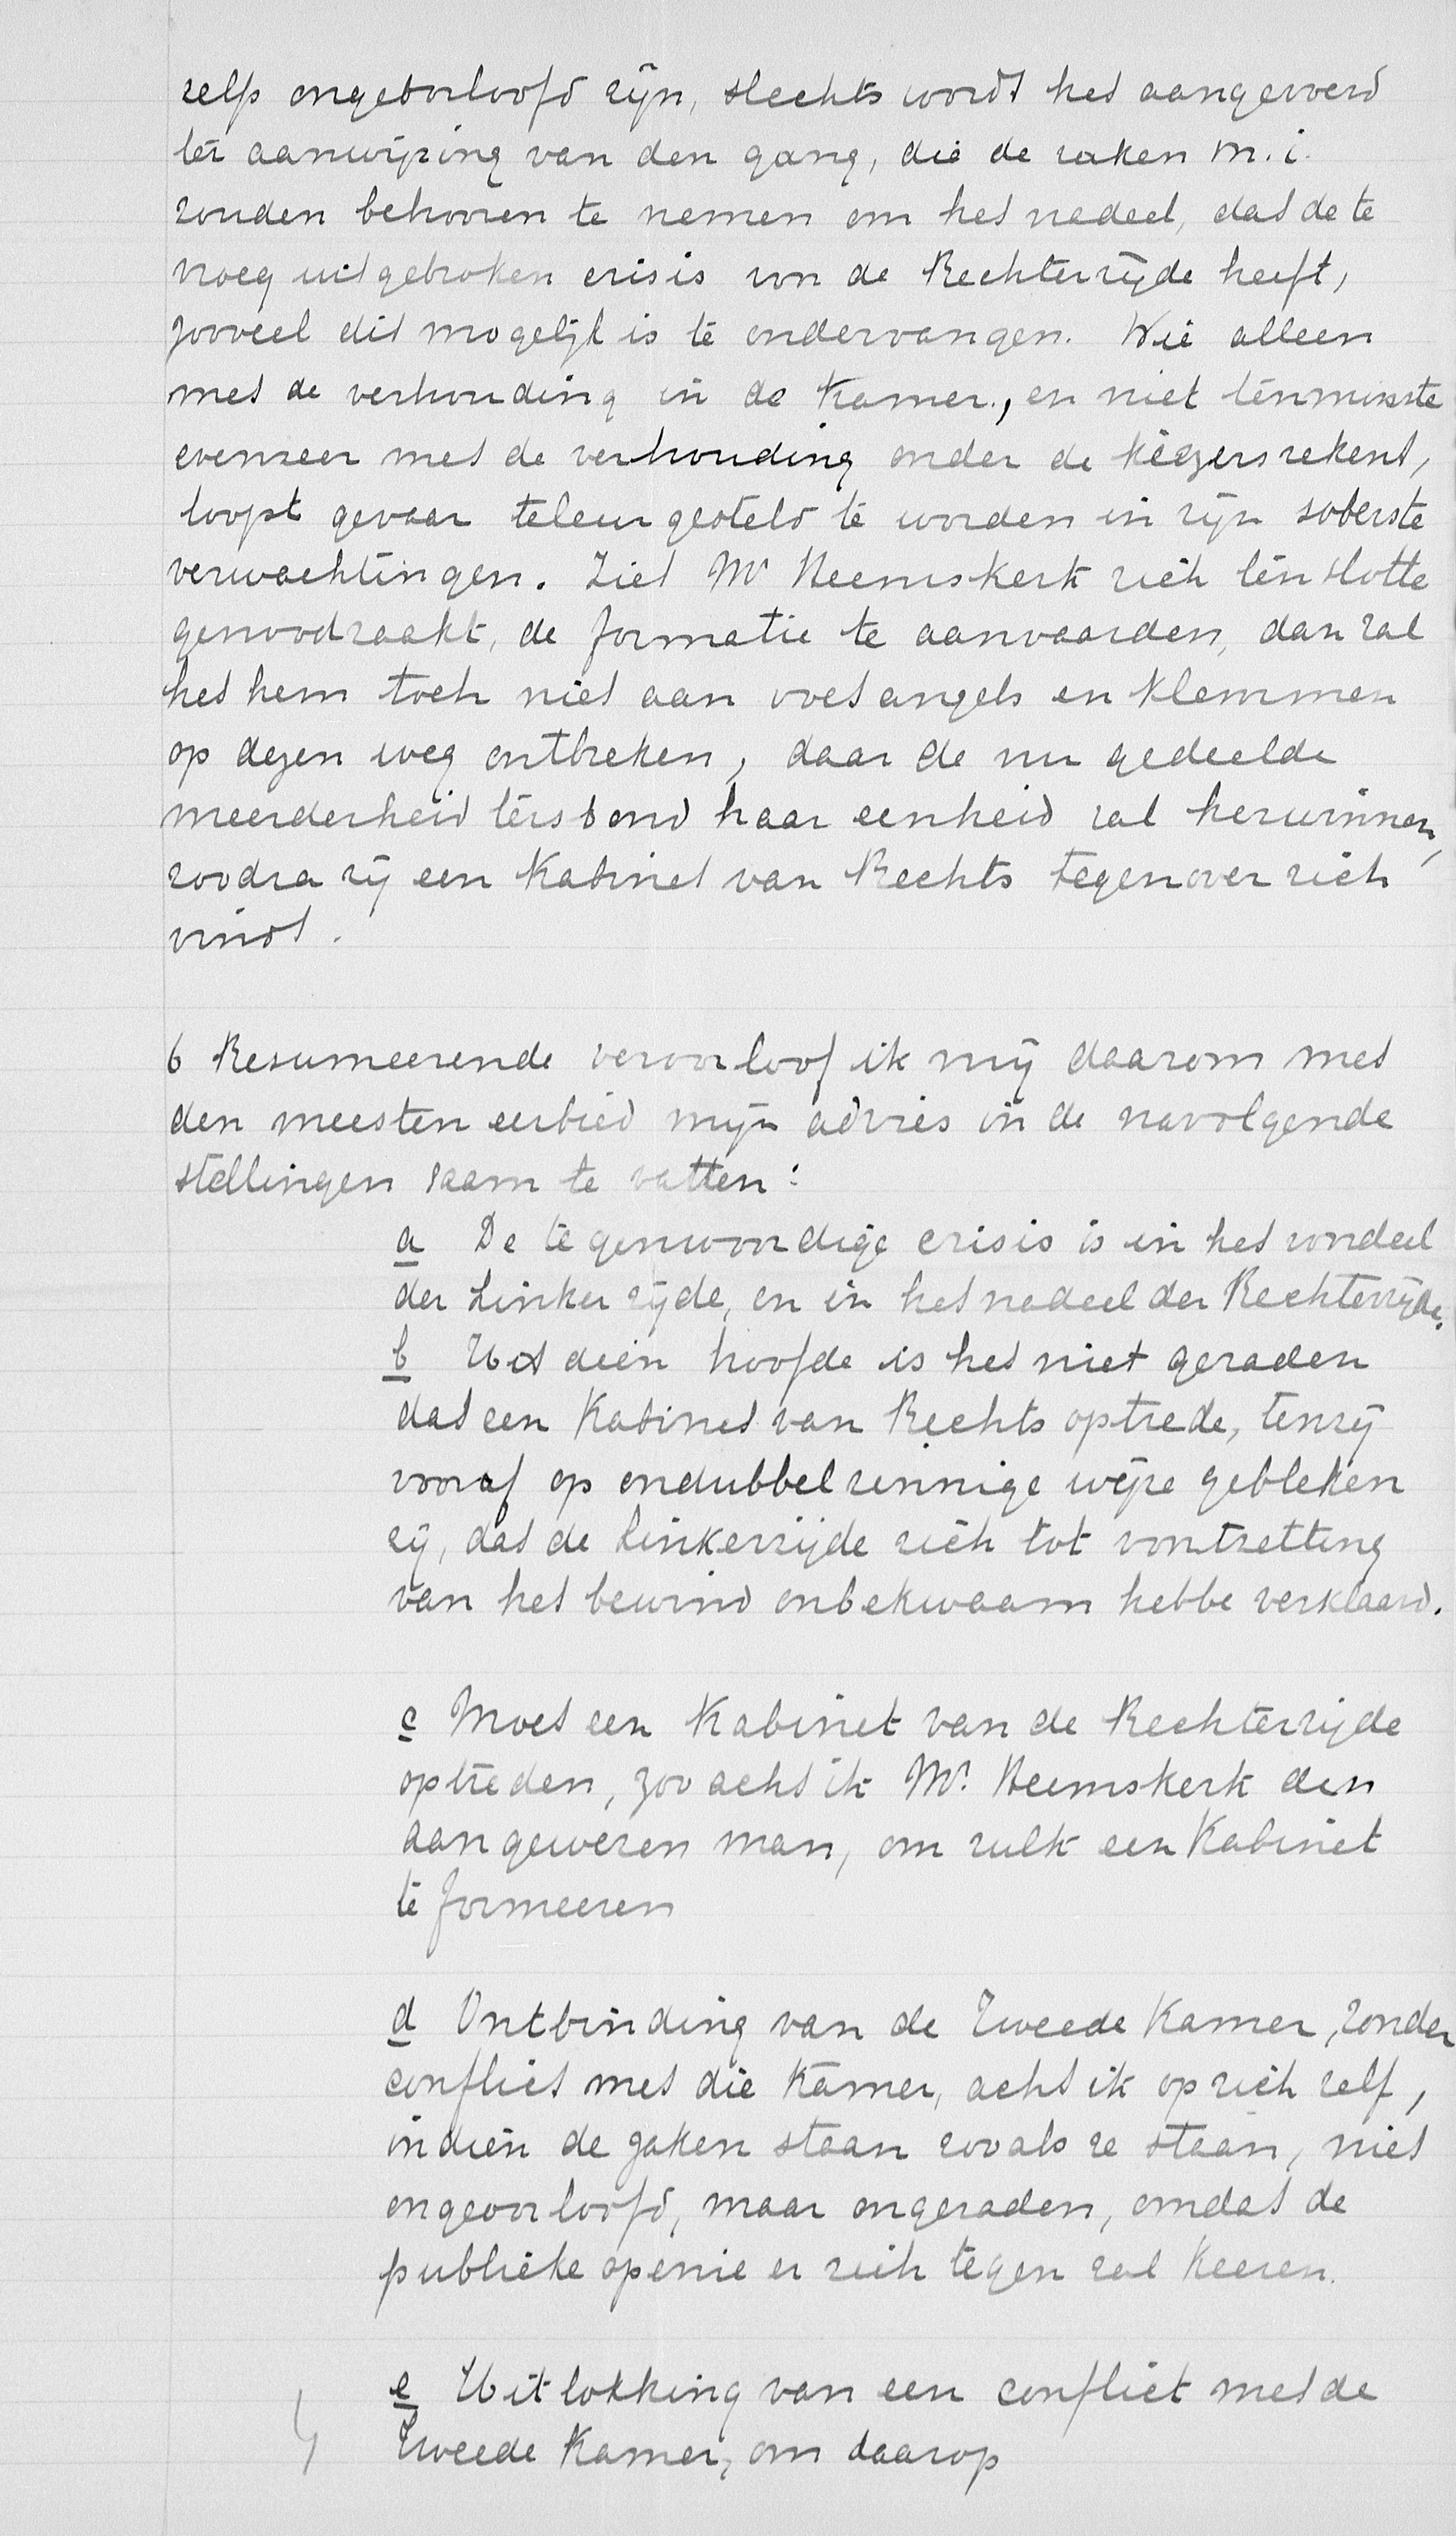 zelfs ongeoorloofd zijn, slechts wordt het aangevoerd
ter aanwijzing van den gang, die de zaken m.i.
zouden behooren te nemen om het nadeel, dat de te
vroeg uitgebroken crisis voor de Rechterzijde heeft,
zooveel dit mogelijk is te ondervangen. Wie alleen
met de verhouding in de Kamer, en niet tenminste
evenzeer met de verhouding onder de kiezers rekent,
loopt gevaar teleurgesteld te worden in zijn soberste
verwachtingen. Ziet Mr Heemskerk zich ten slotte
genoodzaakt, de formatie te aanvaarden, dan zal
het hem toch niet aan voetangels en klemmen
op dezen weg ontbreken, daar de nu gedeelde
meerderheid terstond haar eenheid zal herwinnen,
zoodra zij een Kabinet van Rechts tegenover zich
vindt.
6 Resumeerende veroorloof ik mij daarom met
den meesten eerbied mijn advies in de navolgende
stellingen saam te vatten:
a De tegenwoordige crisis is in het voordeel
der Linkerzijde, en in het nadeel der Rechterzijde.
b Uit dien hoofde is het niet geraden
dat een Kabinet van Rechts optrede, tenzij
vooraf op ondubbelzinnige wijze gebleken
zij, dat de Linkerzijde zich tot voortzetting
van het bewind onbekwaam hebbe verklaard.
c Moet een Kabinet van de Rechterzijde
optreden, zoo acht ik Mr. Heemskerk den
aangewezen man, om zulk een Kabinet
te formeeren
d Ontbinding van de Tweede Kamer, zonder
conflict met die Kamer, acht ik op zich zelf,
indien de zaken staan zooals ze staan, niet
ongeoorloofd, maar ongeraden, omdat de
publieke openie er zich tegen zal keeren.
e Uitlokking van een conflict met de
Tweede Kamer, om daarop